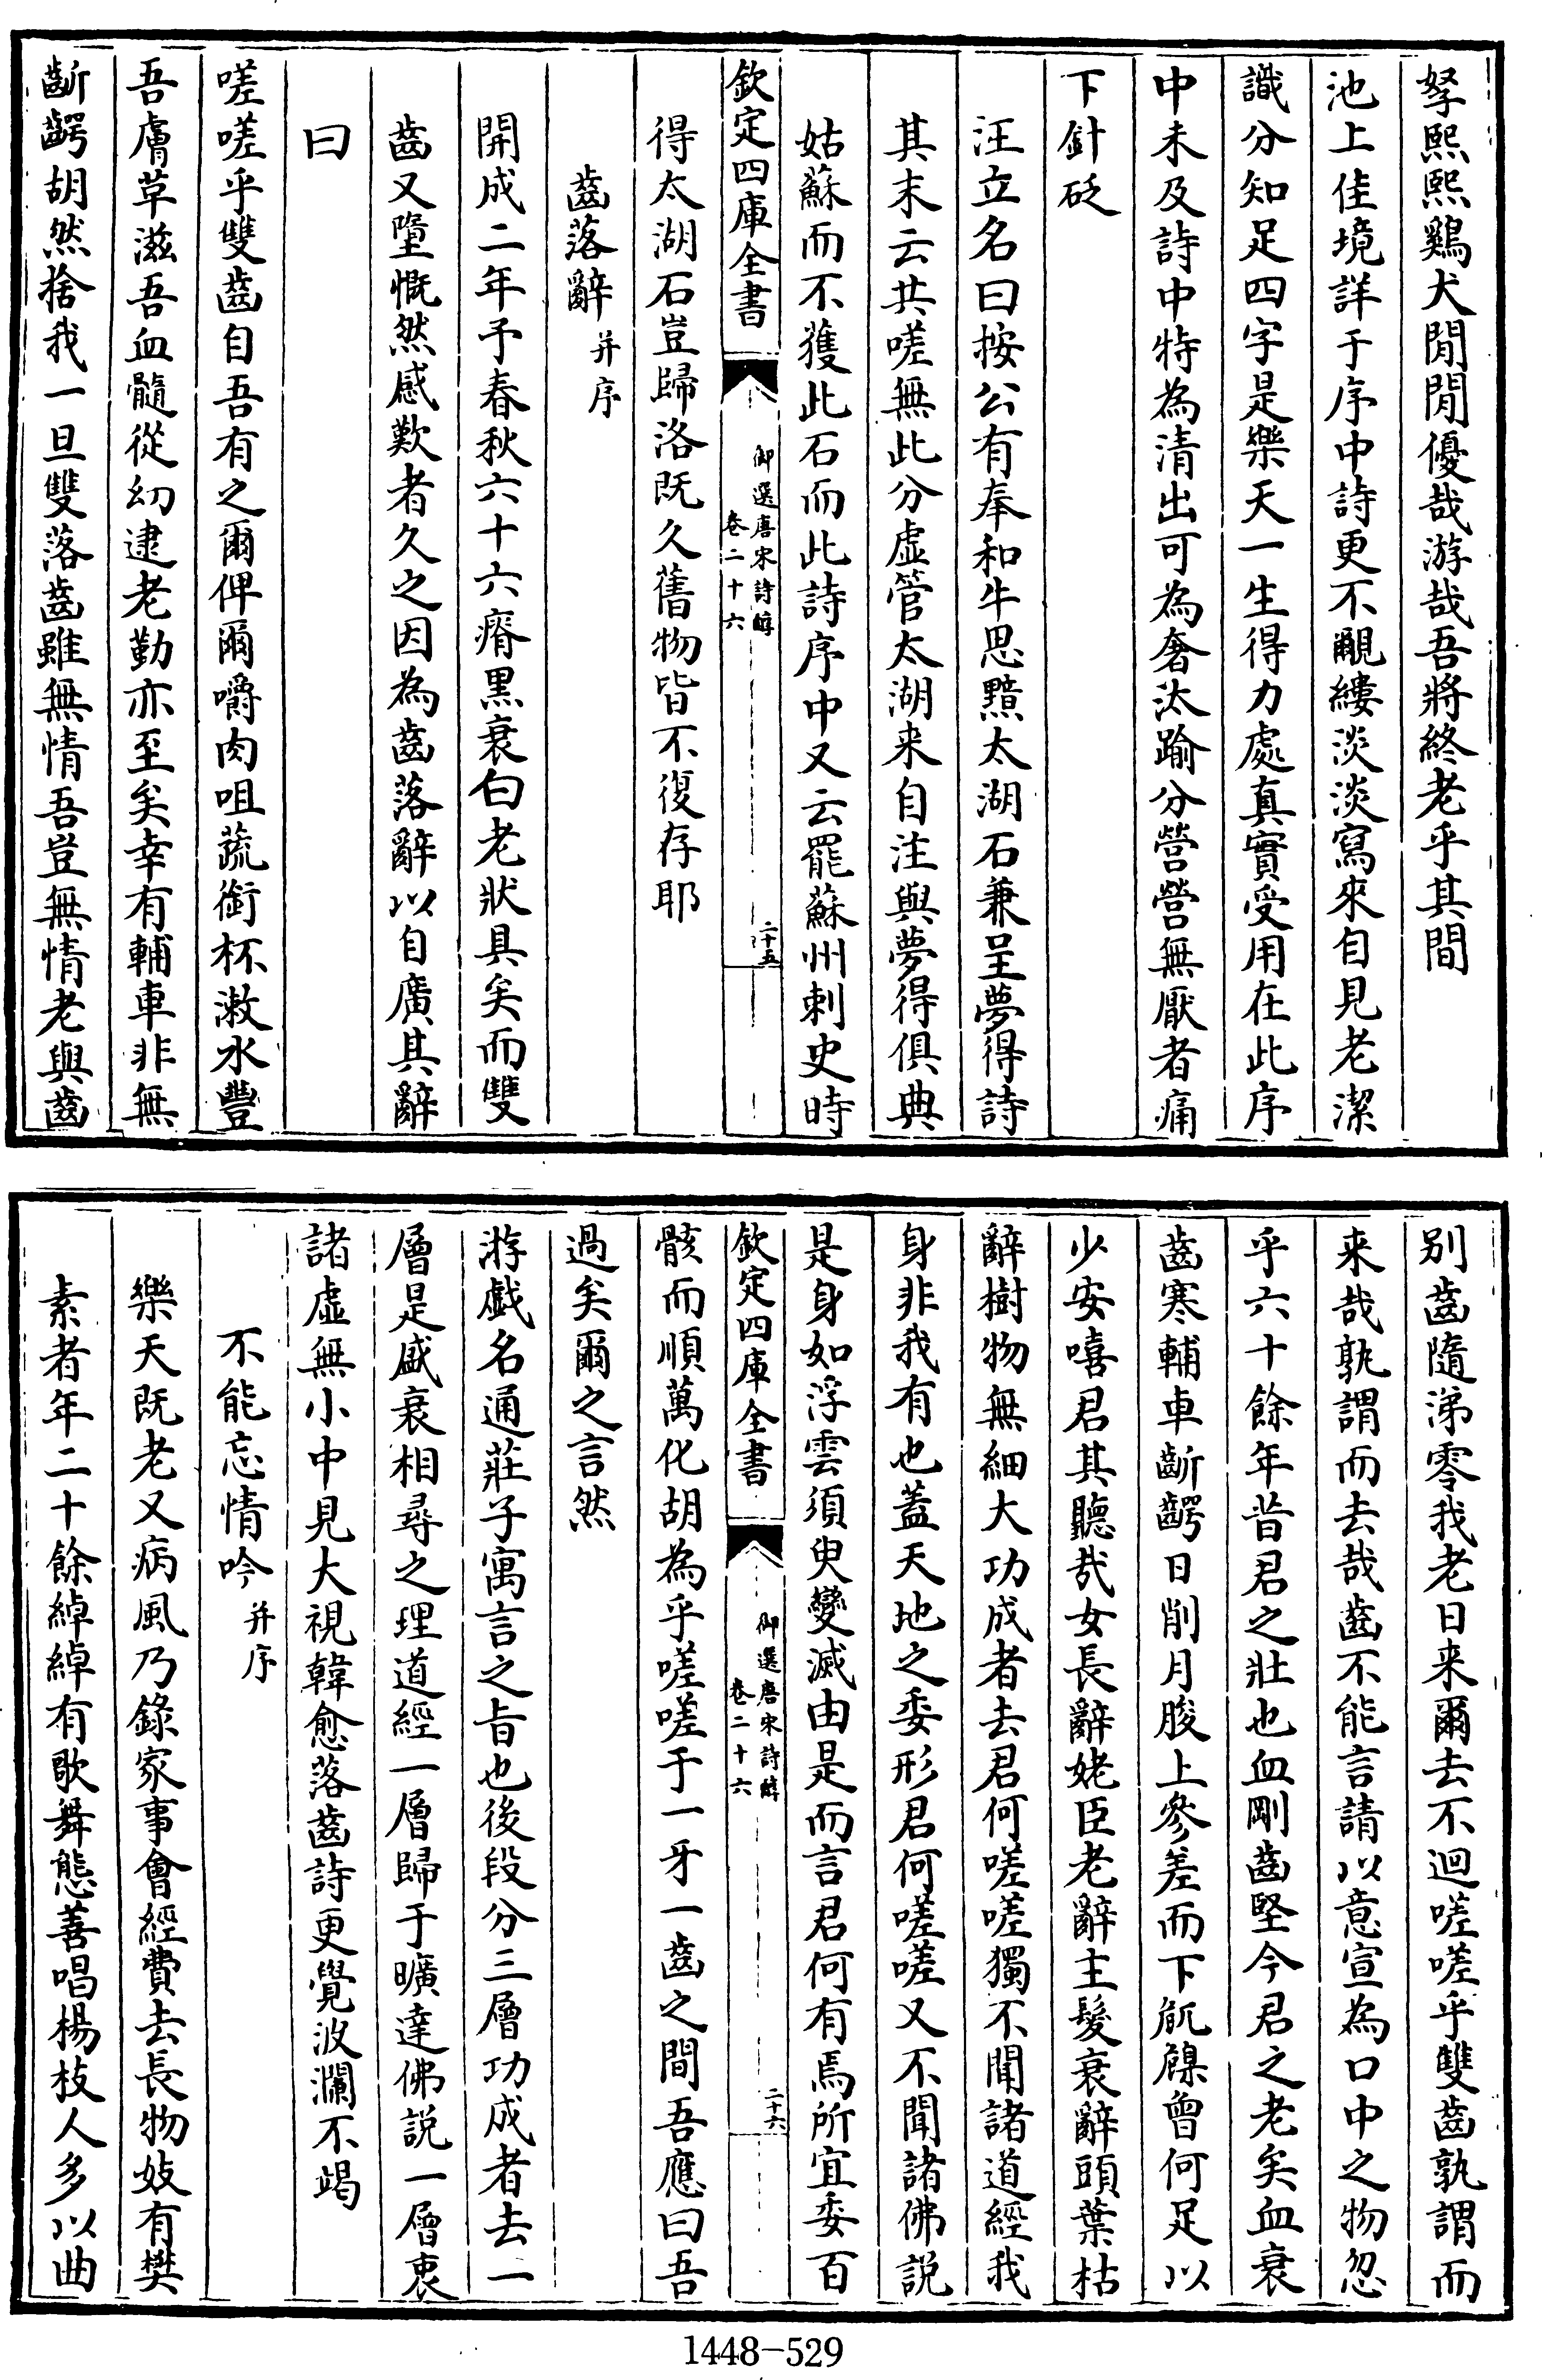 孥熙熙鷄犬閒閒優哉游哉吾將終老乎其間
池上佳境詳于序中詩更不覼縷淡淡寫來自見老潔
識分知足四字是樂天一生得力處真實受用在此序
中未及詩中特為清出可為奢汰踰分營營無厭者痛
下針砭
汪立名曰按公有奉和牛思黯太湖石兼呈夢得詩
其末云共嗟無此分虛管太湖来自注與夢得俱典
姑蘇而不獲此石而此詩序中又云罷蘇州刺史時
欽定四庫全書
御選唐宋詩醇
卷二十六
二十五
得太湖石豈歸洛既久舊物皆不復存耶
齒落辭并序
開成二年予春秋六十六瘠黒衰白老狀具矣而雙
齒又墮慨然感歎者久之因為齒落辭以自廣其辭
曰
嗟嗟乎雙齒自吾有之爾俾爾嚼肉咀蔬銜杯漱水豐
吾膚草滋吾血髓從幼逮老勤亦至矣幸有輔車非無
齗齶胡然捨我一旦雙落齒雖無情吾豈無情老與齒
别齒隨涕零我老日来爾去不迴嗟嗟乎雙齒孰謂而
来哉孰謂而去哉齒不能言請以意宣為口中之物忽
乎六十餘年昔君之壯也血剛齒堅今君之老矣血衰
齒寒輔車齗齶日削月朘上參差而下臲卼曾何足以
少安嘻君其聽哉女長辭姥臣老辭主髮衰辭頭葉枯
辭樹物無細大功成者去君何嗟嗟獨不聞諸道經我
身非我有也蓋天地之委形君何嗟嗟又不聞諸佛説
是身如浮雲須臾變滅由是而言君何有焉所宜委百
欽定四庫全書
御選唐宋詩醇
卷二十六
二十六
骸而順萬化胡為乎嗟嗟于一牙一齒之間吾應曰吾
過矣爾之言然
游戲名通莊子寓言之旨也後段分三層功成者去一
層是盛衰相尋之理道經一層歸于曠達佛説一層衷
諸虛無小中見大視韓愈落齒詩更覺波瀾不竭
不能忘情吟并序
樂天既老又病風乃錄家事會經費去長物妓有樊
素者年二十餘綽綽有歌舞態善唱楊枝人多以曲
1448-529